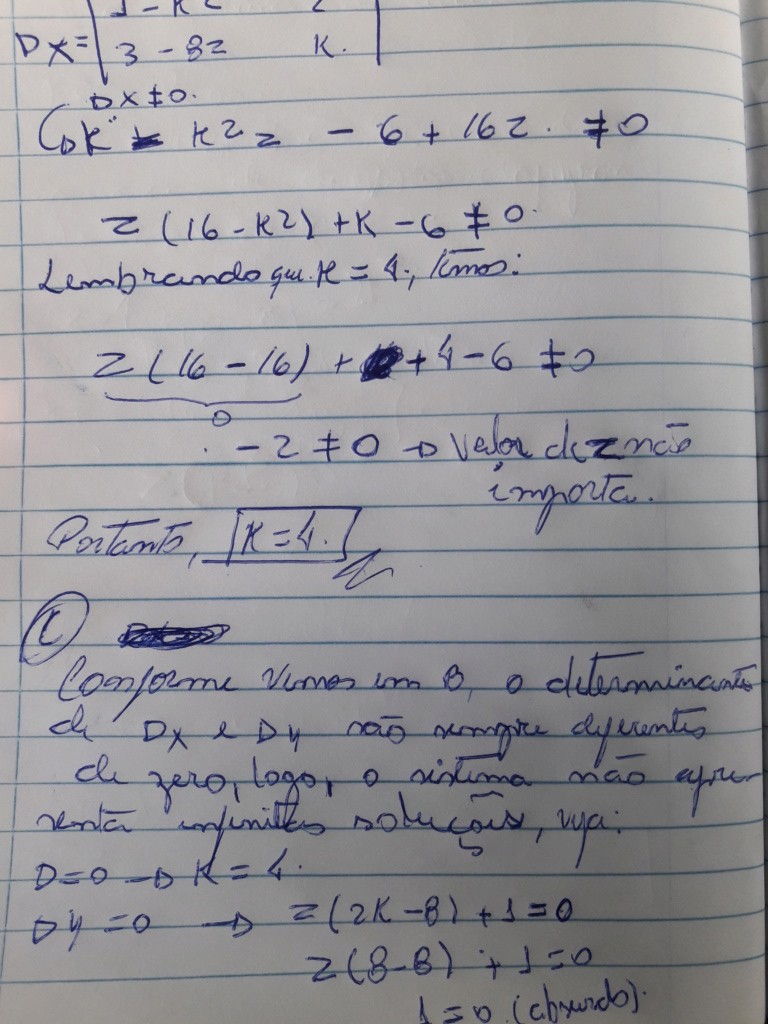 1 - KZ 2
DX = 3 - 8Z K.
DX ≠ 0.
K - K²Z - 6 + 16Z. ≠ 0
Z (16 - K²) + K - 6 ≠ 0.
Lembrando que K = 4, temos:
Z (16 - 16) + + 4 - 6 ≠ 0
0
- 2 ≠ 0 → Valor de Z não
importa.
Portanto, K = 4.
C
Conforme vimos em B, o determinante
de DX e DY são sempre diferentes
de zero, logo, o sistema não apre-
senta infinitas soluções, veja:
D = 0 → K = 4.
DY = 0 → Z (2K - 8) + 1 = 0
Z (8 - 8) + 1 = 0
1 = 0 (absurdo).